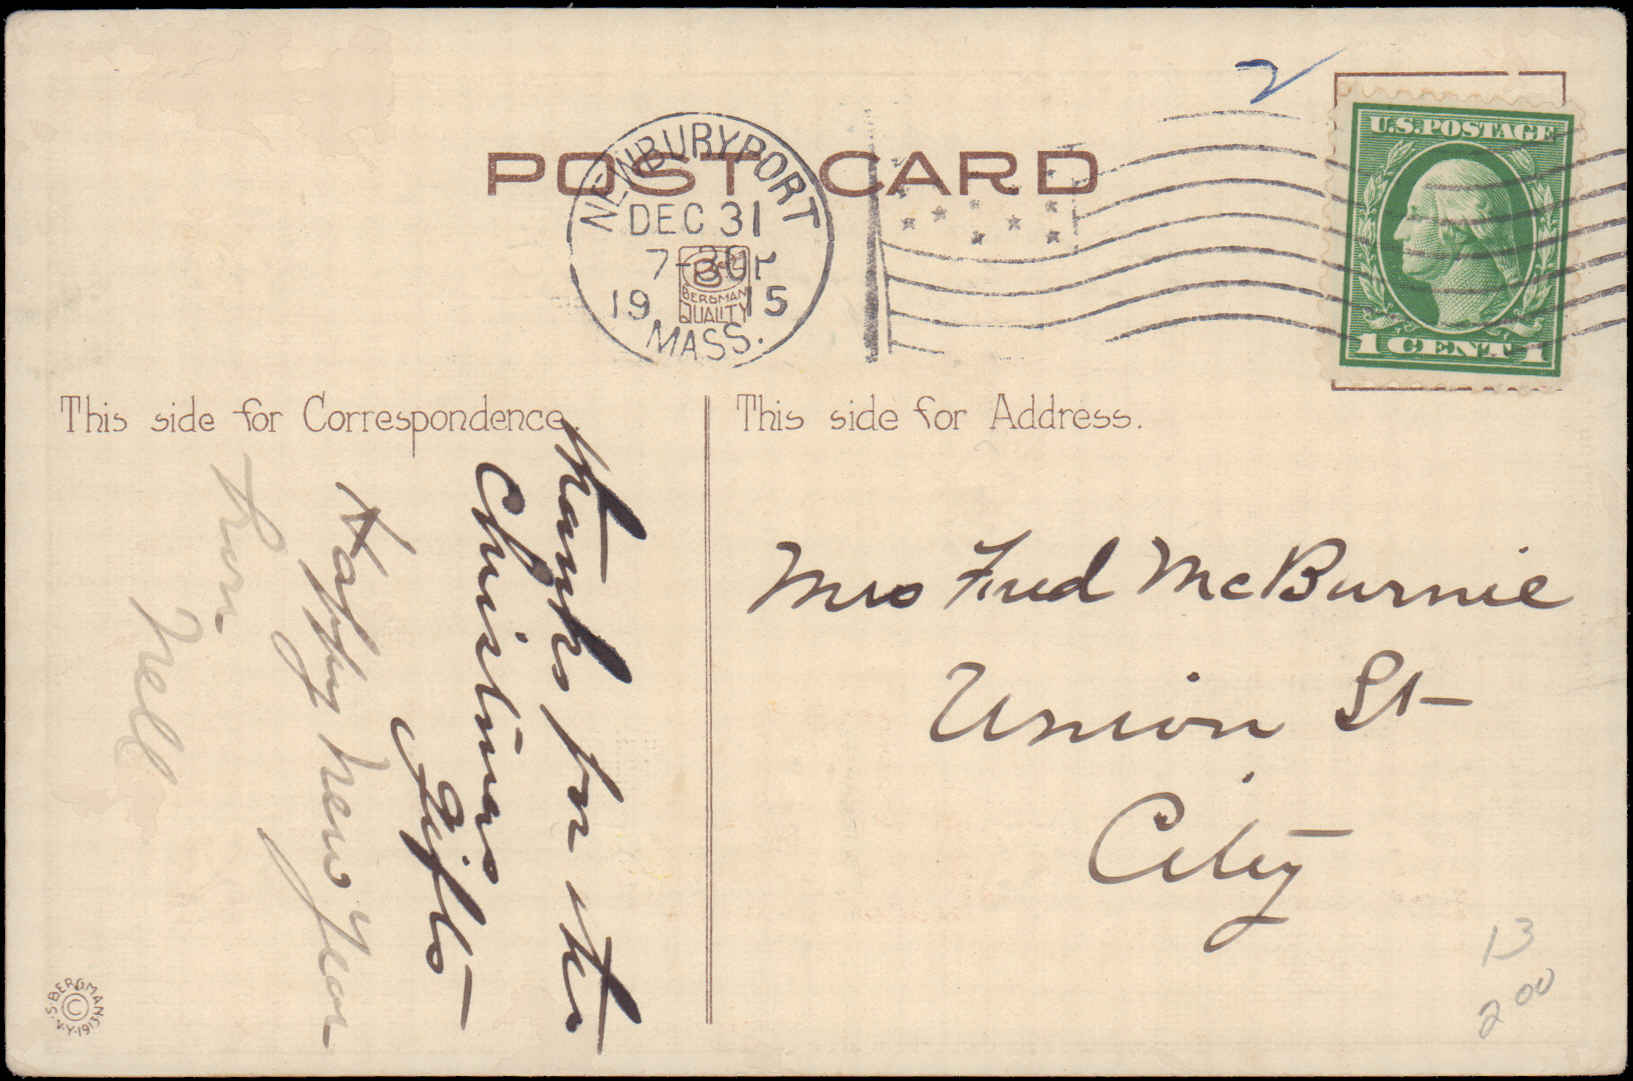 2
POST CARD
NEWBURYPORT
DEC 31
7-30P
19 15
MASS.
BERGMAN
QUALITY
U.S. POSTAGE
1 CENT 1
This side for Correspondence.
This side for Address.
Thanks for the
Christmas
Gifts
Happy New Year
Nell
Mrs Fred McBurnie
Union St
City
13
2 00
S. BERGMAN © N.Y. 1913